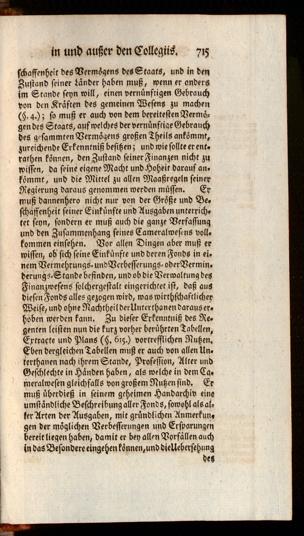 in und außer den Collegiis. 715
schaffenheit des Vermögens des Staats, und in den
Zustand seiner Länder haben muß, wenn er anders
im Stande seyn will, einen vernünftigen Gebrauch
von den Kräften des gemeinen Wesens zu machen
(§. 4.); so muß er auch von dem bereitesten Vermö-
gen des Staats, auf welches der vernünftige Gebrauch
des gesammten Vermögens großen Theils ankömmt,
zureichende Erkenntniß besitzen; und wie sollte er ent-
rathen können, den Zustand seiner Finanzen nicht zu
wissen, da seine eigene Macht und Hoheit darauf an-
kömmt, und die Mittel zu allen Maaßregeln seiner
Regierung daraus genommen werden müssen. Er
muß dannenhero nicht nur von der Größe und Be-
schaffenheit seiner Einkünfte und Ausgaben unterrich-
tet seyn, sondern er muß auch die ganze Verfassung
und den Zusammenhang seines Cameralwesens voll-
kommen einsehen. Vor allen Dingen aber muß er
wissen, ob sich seine Einkünfte und deren Fonds in ei-
nem Vermehrungs- und Verbesserungs- oder Vermin-
derungs-Stande befinden, und ob die Verwaltung des
Finanzwesens solchergestalt eingerichtet ist, daß aus
diesen Fonds alles gezogen wird, was wirthschaftlicher
Weise, und ohne Nachtheil der Unterthanen daraus er-
hoben werden kann. Zu dieser Erkenntniß des Re-
genten leisten nun die kurz vorher berührten Tabellen,
Extracte und Plans (§. 615.) vortrefflichen Nutzen.
Eben dergleichen Tabellen muß er auch von allen Un-
terthanen nach ihrem Stande, Profession, Alter und
Geschlechte in Händen haben, als welche in dem Ca-
meralwesen gleichfalls von großem Nutzen sind. Er
muß überdieß in seinem geheimen Handarchiv eine
umständliche Beschreibung aller Fonds, sowohl als al-
ler Arten der Ausgaben, mit gründlichen Anmerkun-
gen der möglichen Verbesserungen und Ersparungen
bereit liegen haben, damit er bey allen Vorfällen auch
in das Besondere eingehen können, und die Uebersehung
des